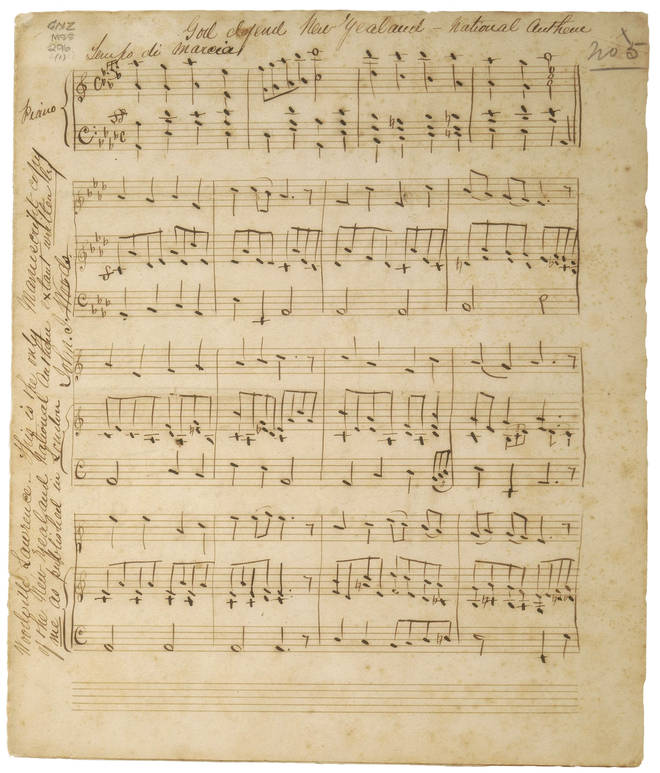 GNZ
MSS
296
(1)
God defend New Zealand - National Anthem
No 5
Tempo di Marcia
Piano
Woodville Lawrence. This is the only Manuscript copy
of the New Zealand National Anthem extant written by
me as published in London John J. Woods.